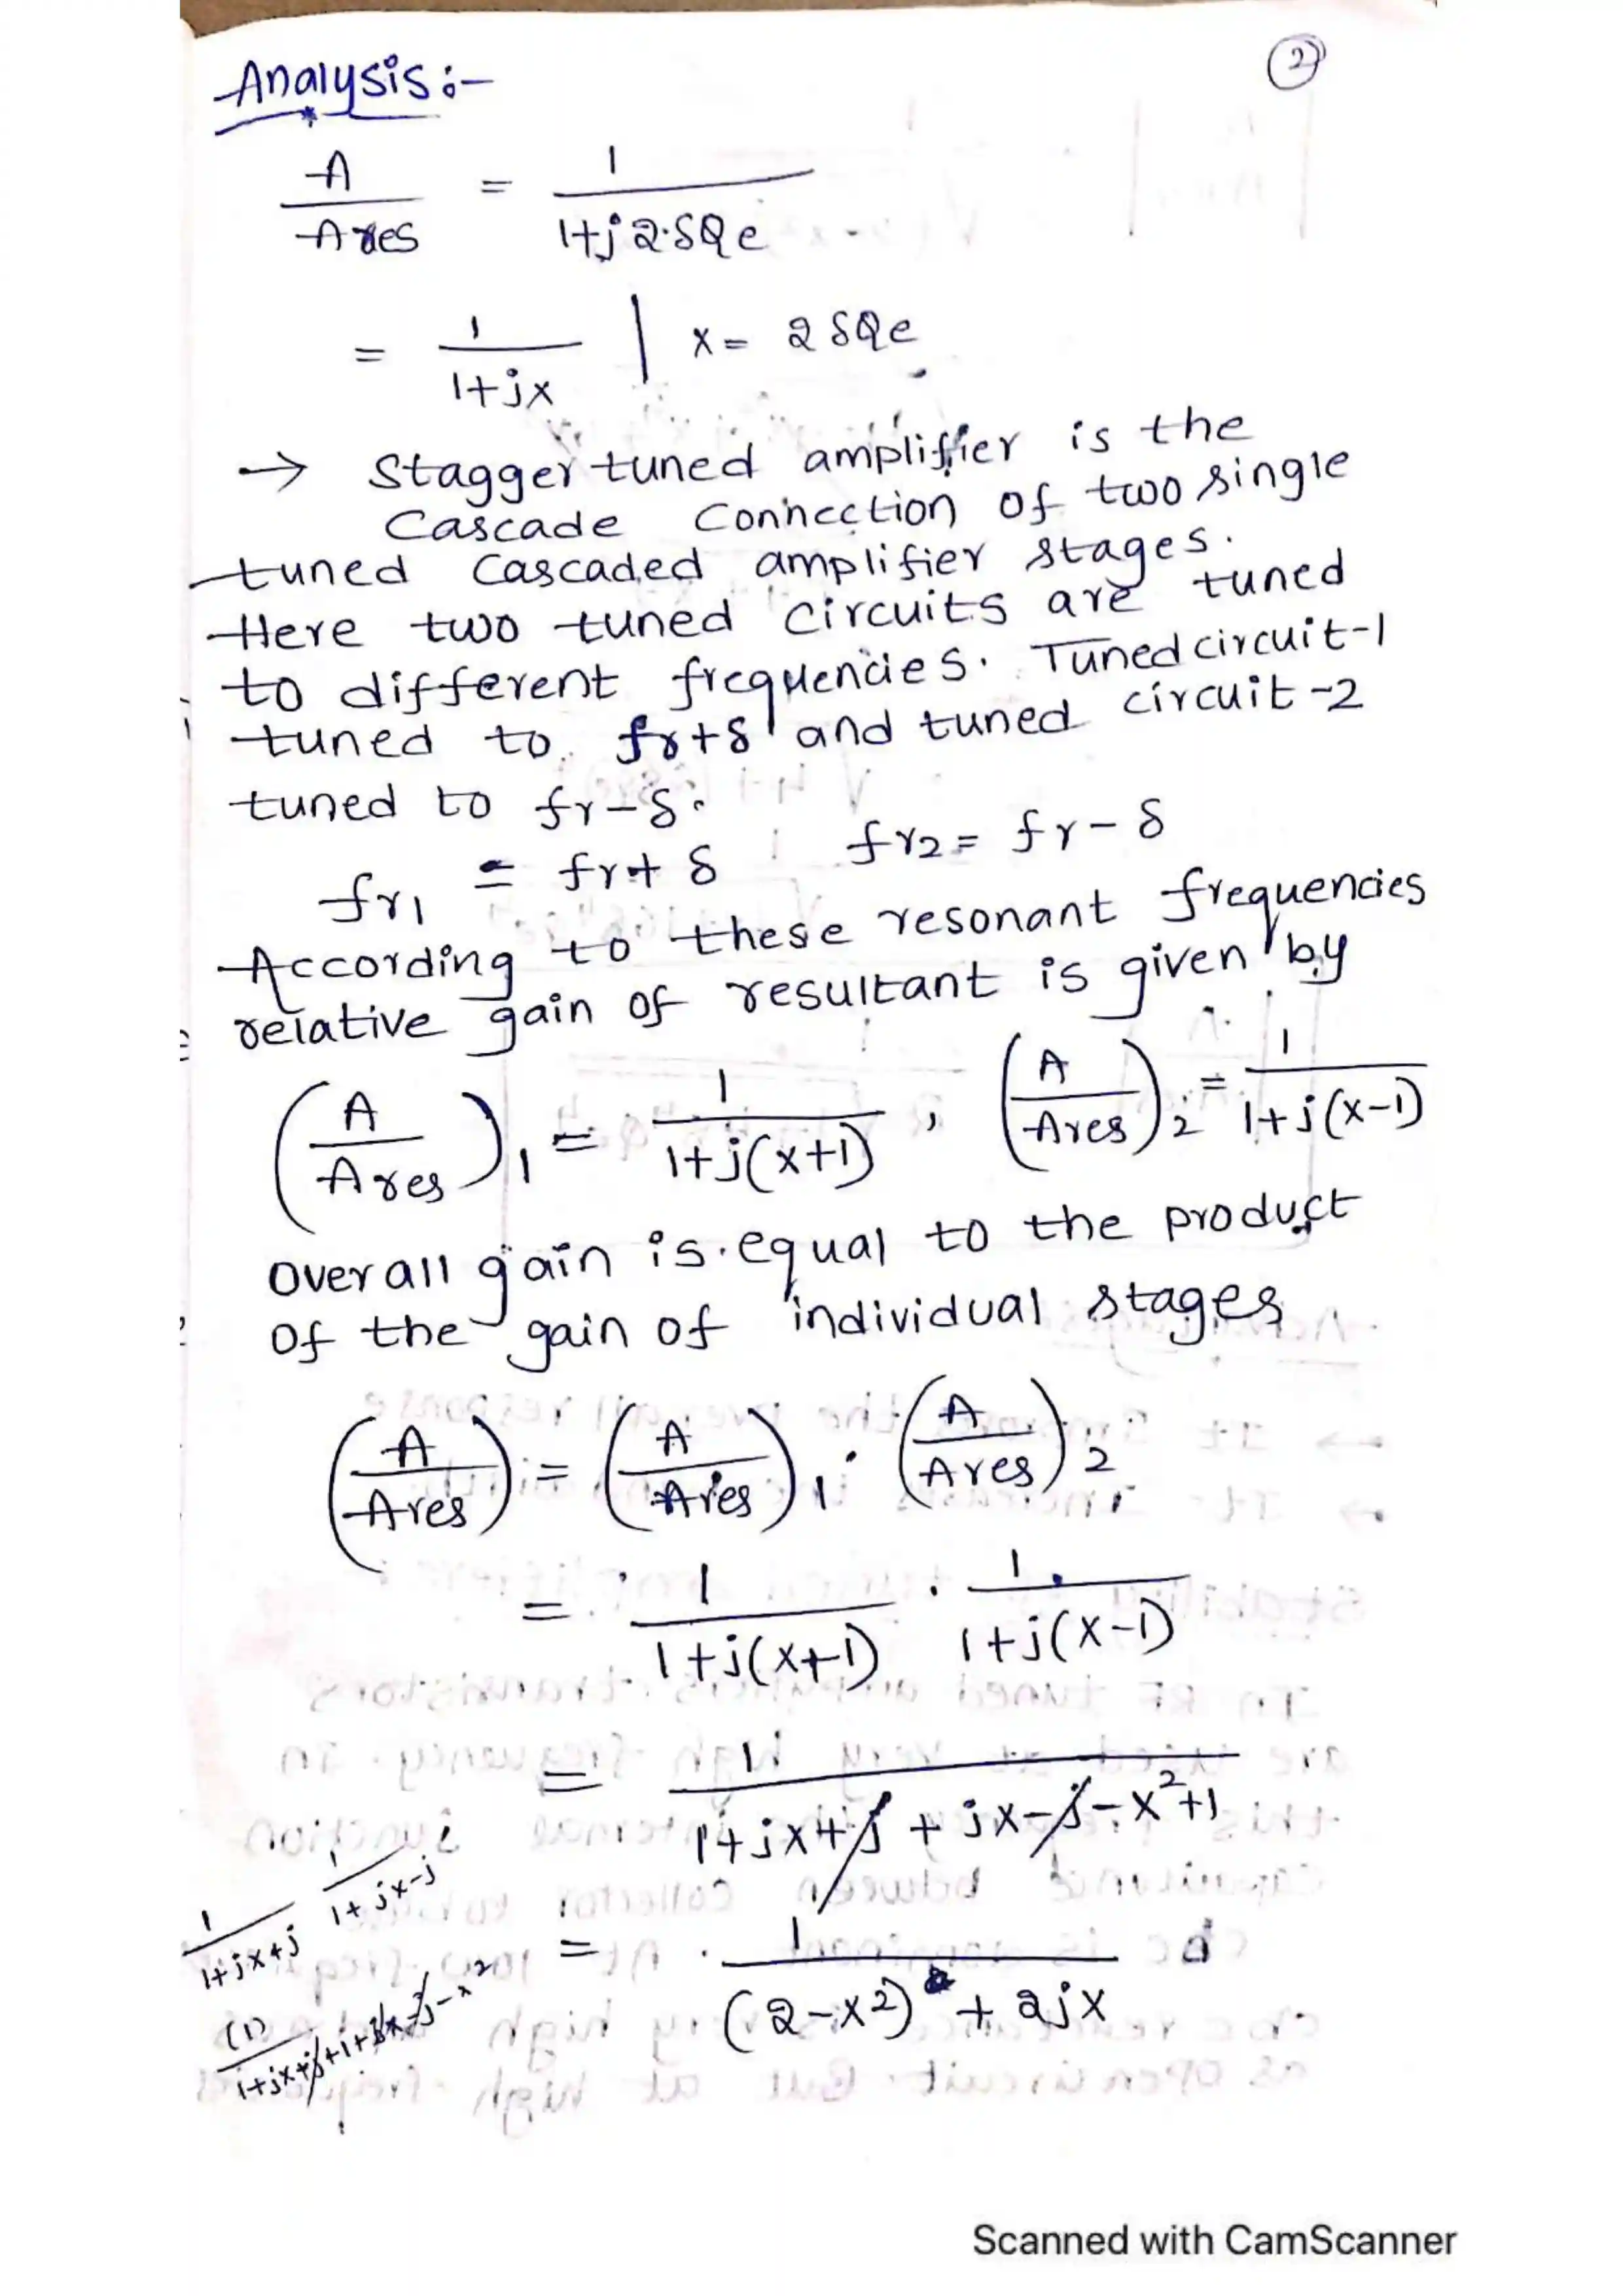 Analysis:-
2
A/Ares = 1/1+j2.δQe
= 1/1+jx | x= 2δQe
→ Stagger tuned amplifier is the
Cascade Connection of two single
tuned Cascaded amplifier stages.
Here two tuned circuits are tuned
to different frequencies. Tuned circuit-1
tuned to fr+δ and tuned circuit-2
tuned to fr-δ.
fr1 = fr+δ fr2 = fr-δ
According to these resonant frequencies
relative gain of resultant is given by
(A/Ares)1 = 1/1+j(x+1) , (A/Ares)2 = 1/1+j(x-1)
Overall gain is equal to the product
Of the gain of individual stages
(A/Ares) = (A/Ares)1 . (A/Ares)2
= 1/1+j(x+1) . 1/1+j(x-1)
= 1/1+jx+j+jx-j-x²+1
1/1+jx+j 1/1+jx-j
= 1/(2-x²)+2jx
Scanned with CamScanner